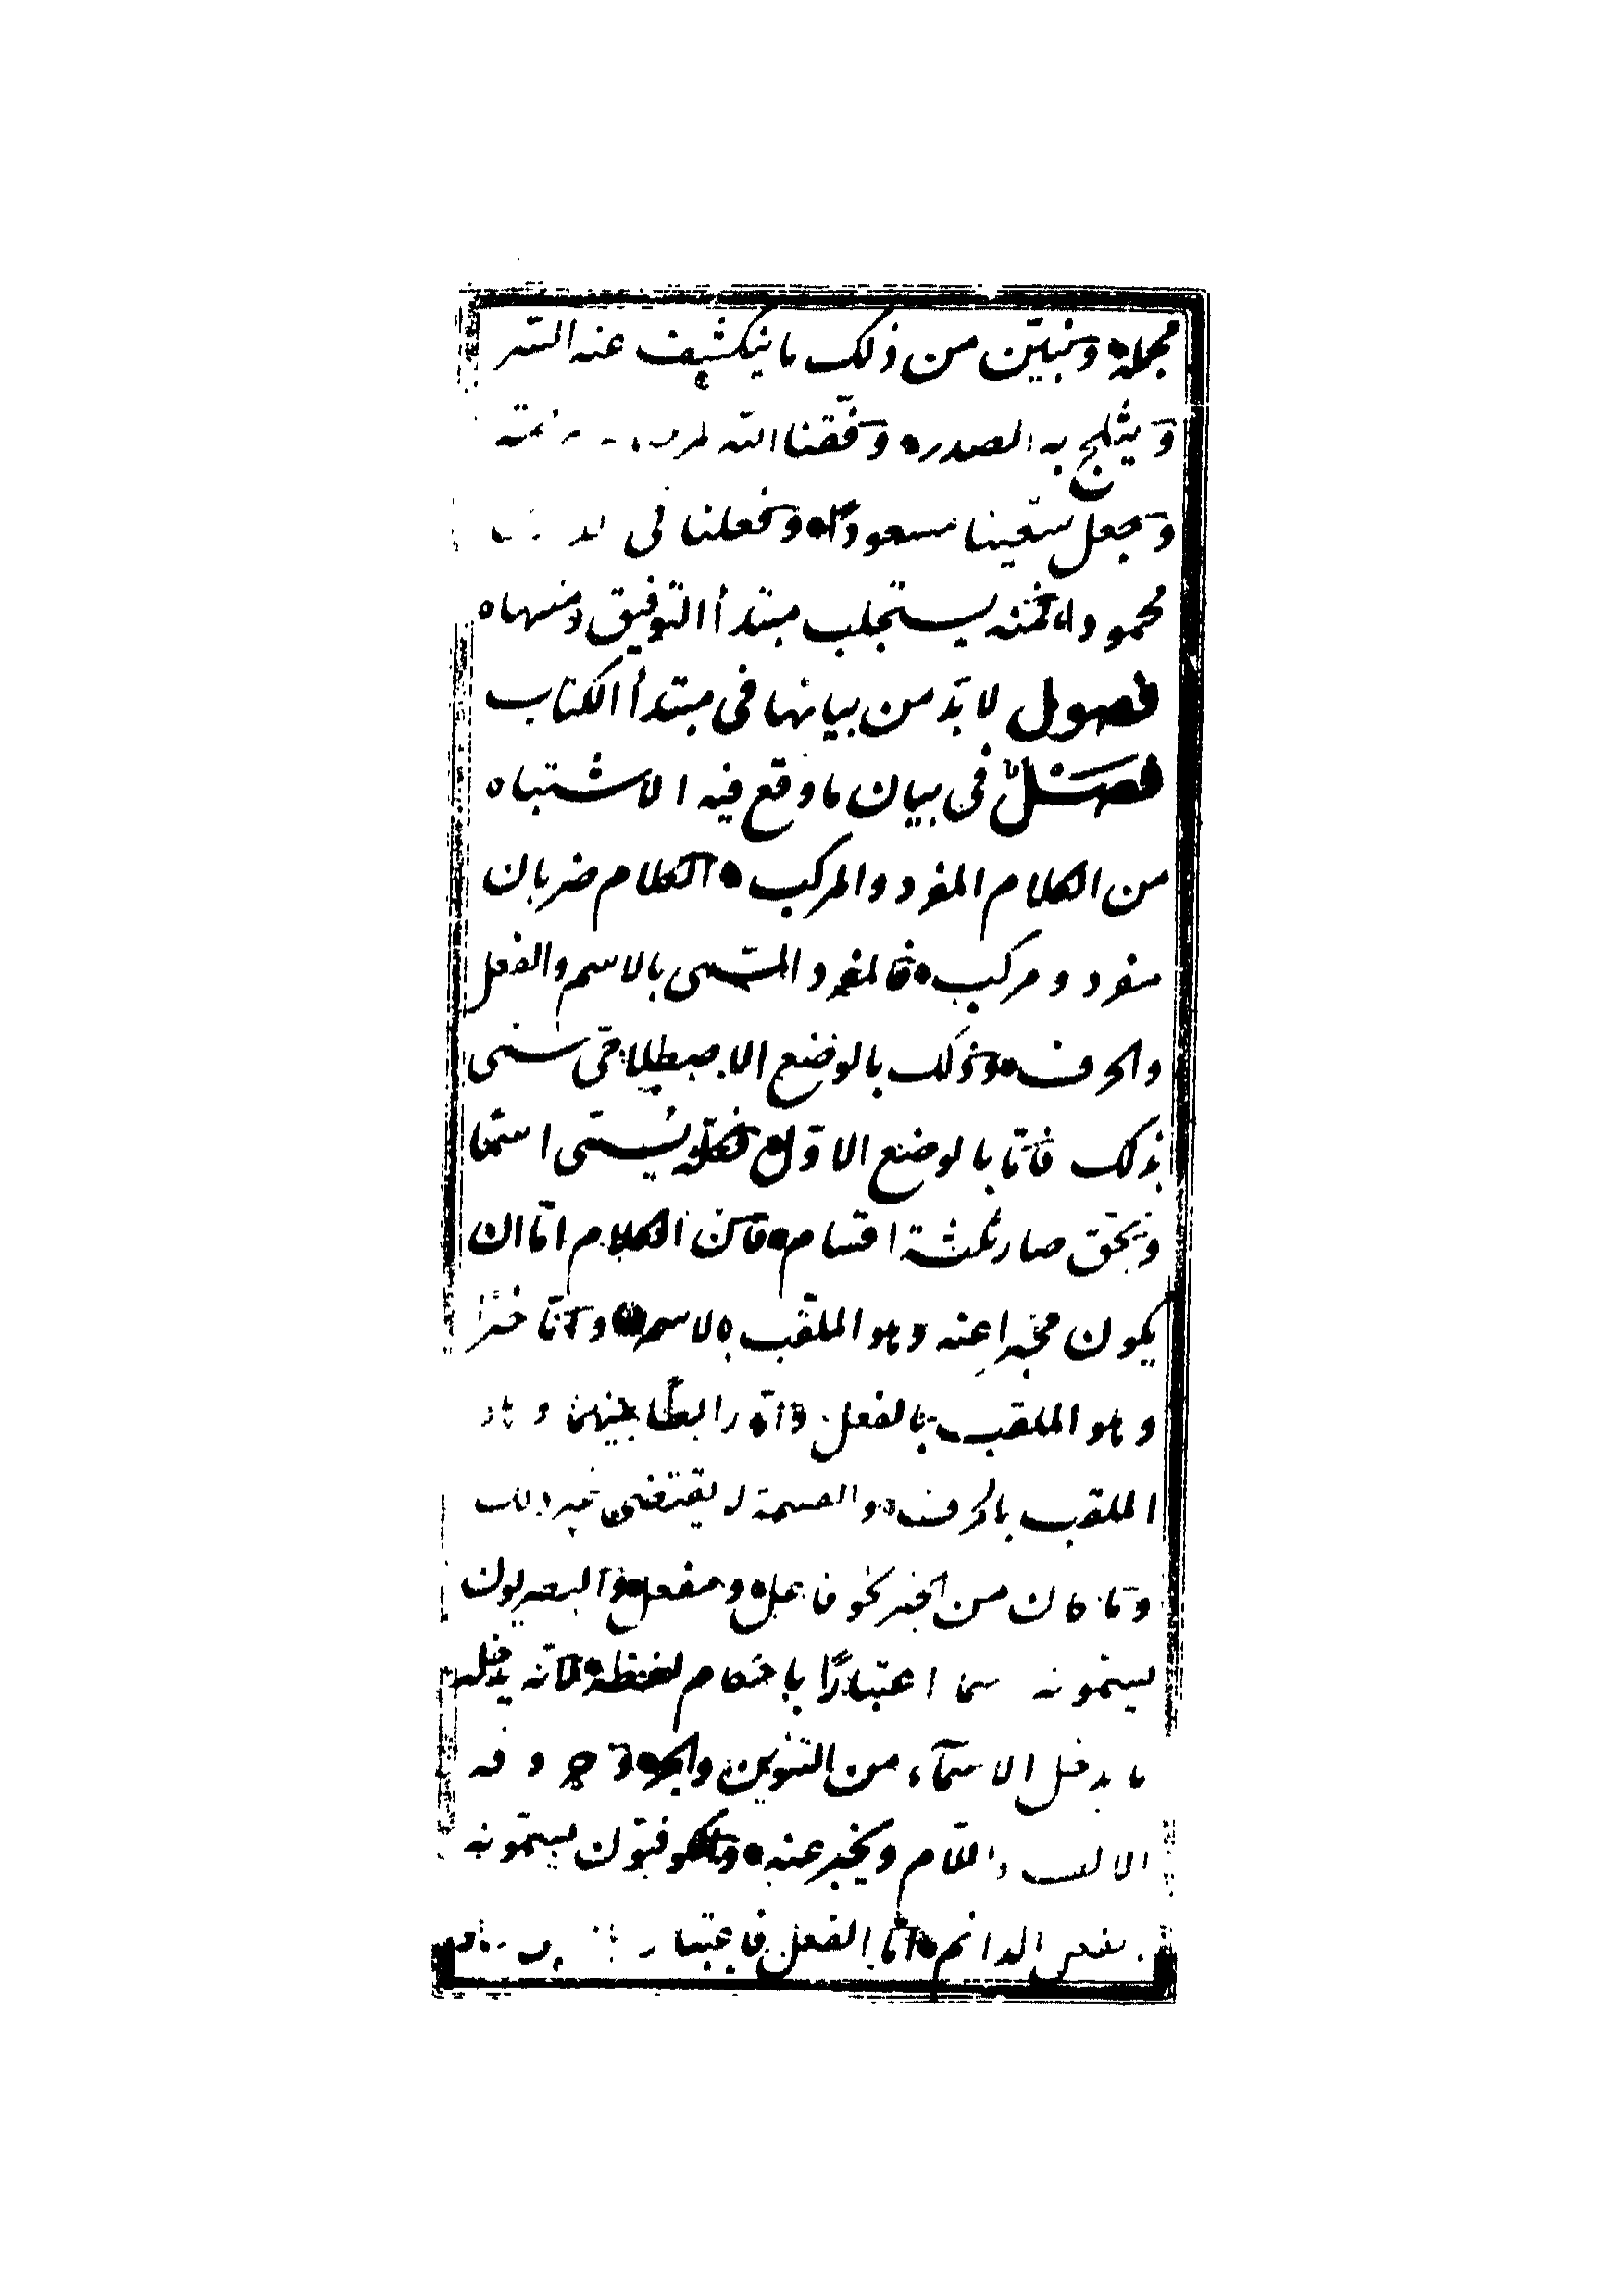 مجمله ونبيّن من ذلك ما ينكشف عنه السّر
ويثلج به الصدر وفّقنا الله
وجعل سعينا مسعودًا وفعلنا فى
محمودا فمنه يستجلب مبتدأ التوفيق ومنتهاه
فصول لا بدّ من بيانها فى مبتدأ الكتاب
فصل فى بيان ما وقع فيه الاشتباه
من الكلام المفرد والمركب الكلام ضربان
مفرد ومركب فالمفرد المسمى بالاسم والفعل
والحرف وذلك بالوضع الاصطلاحى سمى
بذلك فامّا بالوضع الاوّل فكله يسمّى اسمًا
وبحق صار ثلثة اقسام فان الكلام امّا ان
يكون مخبرا عنه وهو الملقّب بالاسم وامّا خبرًا
وهو الملقب بالفعل وامّا رابطًا بينهما وهو
الملقب بالحرف والقسمة لا يقتضى غير ذلك
وما كان من الخبر نحو فاعل ومفعل فالبصريون
يسمّونه اسما اعتبارًا باحكام لفظه لانه يدخله
ما يدخل الاسمآء من التنوين والجر و وفه
الالف واللام ويخبر عنه والكوفيّون يسمّونه
الفعل الدائم امّا الفعل فاعتبار